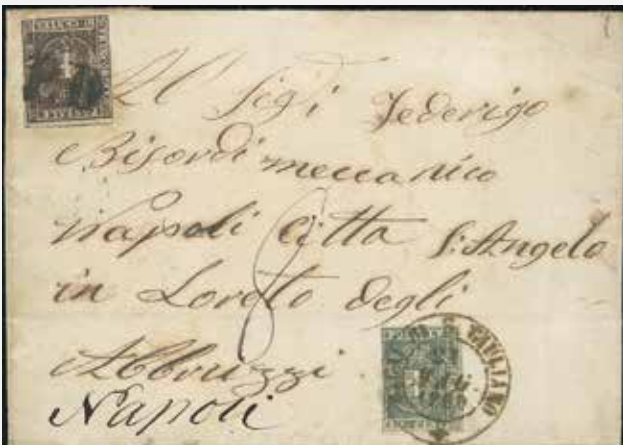 Al Sigr Federigo
Bisordi meccanico
Napoli citta S. Angelo
in Loreto degli
Abbruzzi
Napoli
GIULIANO